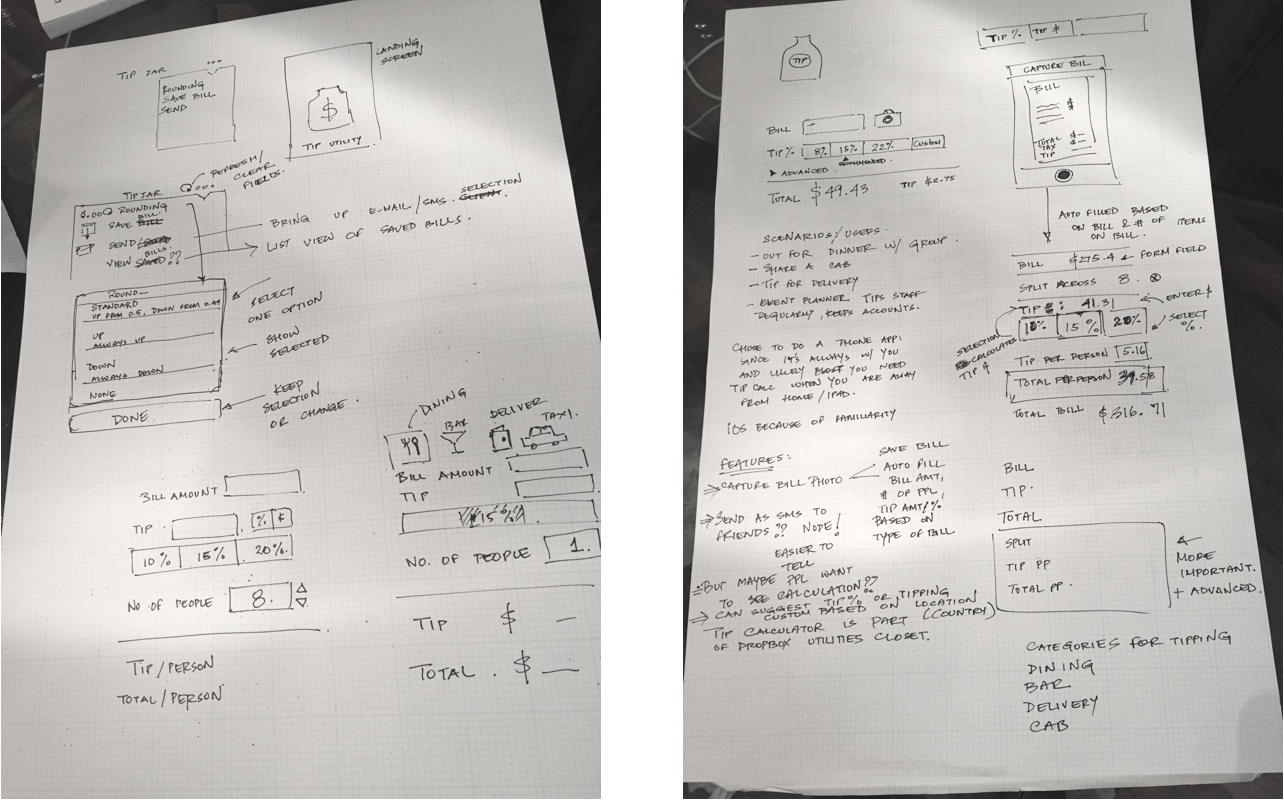 TIP JAR
...
ROUNDING
SAVE BILL
SEND
LANDING
SCREEN
$
TIP UTILITY
REFRESH/
CLEAR
FIELDS.
TIP JAR
...
0.00 ROUNDING
SAVE BILL
SEND/
BILLS.
VIEW SAVED??
BRING UP E-MAIL/SMS. SELECTION
CLIENT.
LIST VIEW OF SAVED BILLS.
ROUND...
STANDARD
UP FROM 0.5, DOWN FROM 0.49
UP
ALWAYS UP
DOWN
ALWAYS DOWN
NONE
DONE
SELECT
ONE OPTION
SHOW
SELECTED
KEEP
SELECTION
OR CHANGE.
BILL AMOUNT
TIP % $
10% 15% 20%
NO. OF PEOPLE 8.
TIP/PERSON
TOTAL/PERSON
DINING
BAR
DELIVER
TAXI.
BILL AMOUNT
TIP
15%
NO. OF PEOPLE 1.
TIP $ —
TOTAL. $ —
TIP
BILL
TIP% 8% 15% 22% CUSTOM
RECOMMENDED.
▶ ADVANCED
TOTAL $49.43 TIP $2.75
SCENARIOS/USERS.
- OUT FOR DINNER W/ GROUP.
- SHARE A CAB
- TIP FOR DELIVERY
- EVENT PLANNER TIPS STAFF
REGULARLY, KEEPS ACCOUNTS.
CHOSE TO DO A PHONE APP:
SINCE IT'S ALWAYS W/ YOU
AND LIKELY MOST YOU NEED
TIP CALC WHEN YOU ARE AWAY
FROM HOME/IPAD.
iOS BECAUSE OF FAMILIARITY
FEATURES:
⇒ CAPTURE BILL PHOTO
SAVE BILL
AUTO FILL
BILL AMT,
# OF PPL,
TIP AMT/%
BASED ON
TYPE OF BILL
⇒ SEND AS SMS TO
FRIENDS?? NOPE!
EASIER TO
TELL
BUT MAYBE PPL WANT
TO SEE CALCULATION??
⇒ CAN SUGGEST TIP % OR TIPPING
CUSTOM BASED ON LOCATION
(COUNTRY)
TIP CALCULATOR IS PART
OF DROPBOX UTILITIES CLOSET.
TIP % TIP $
CAPTURE BILL
BILL
$
$
TOTAL $—
TAX
TIP
AUTO FILLED BASED
ON BILL & # OF ITEMS
ON BILL.
BILL $275.4 ← FORM FIELD
SPLIT ACROSS 8.
TIP $: 41.31 ← ENTER $
10% 15% 20%
SELECT
%.
SELECTION
CALCULATES
TIP
TIP PER PERSON 5.16
TOTAL PER PERSON 39.58
TOTAL BILL $316.71
BILL
TIP.
TOTAL
SPLIT
TIP PP
TOTAL PP.
MORE
IMPORTANT.
+ ADVANCED.
CATEGORIES FOR TIPPING
DINING
BAR
DELIVERY
CAB